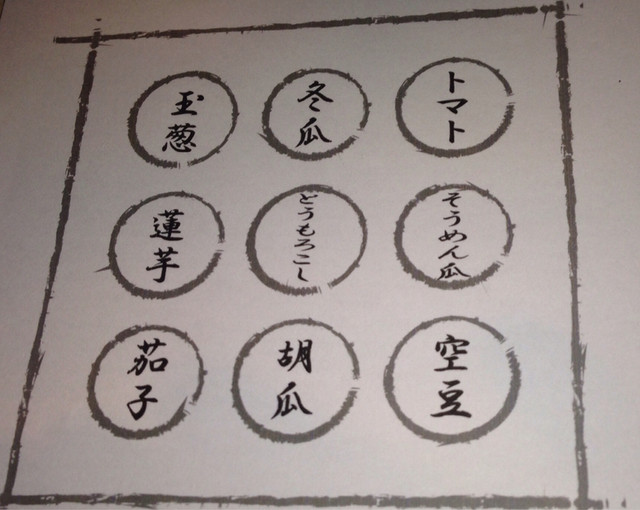 トマト
冬瓜
玉葱
そうめん瓜
とうもろこし
蓮芋
空豆
胡瓜
茄子